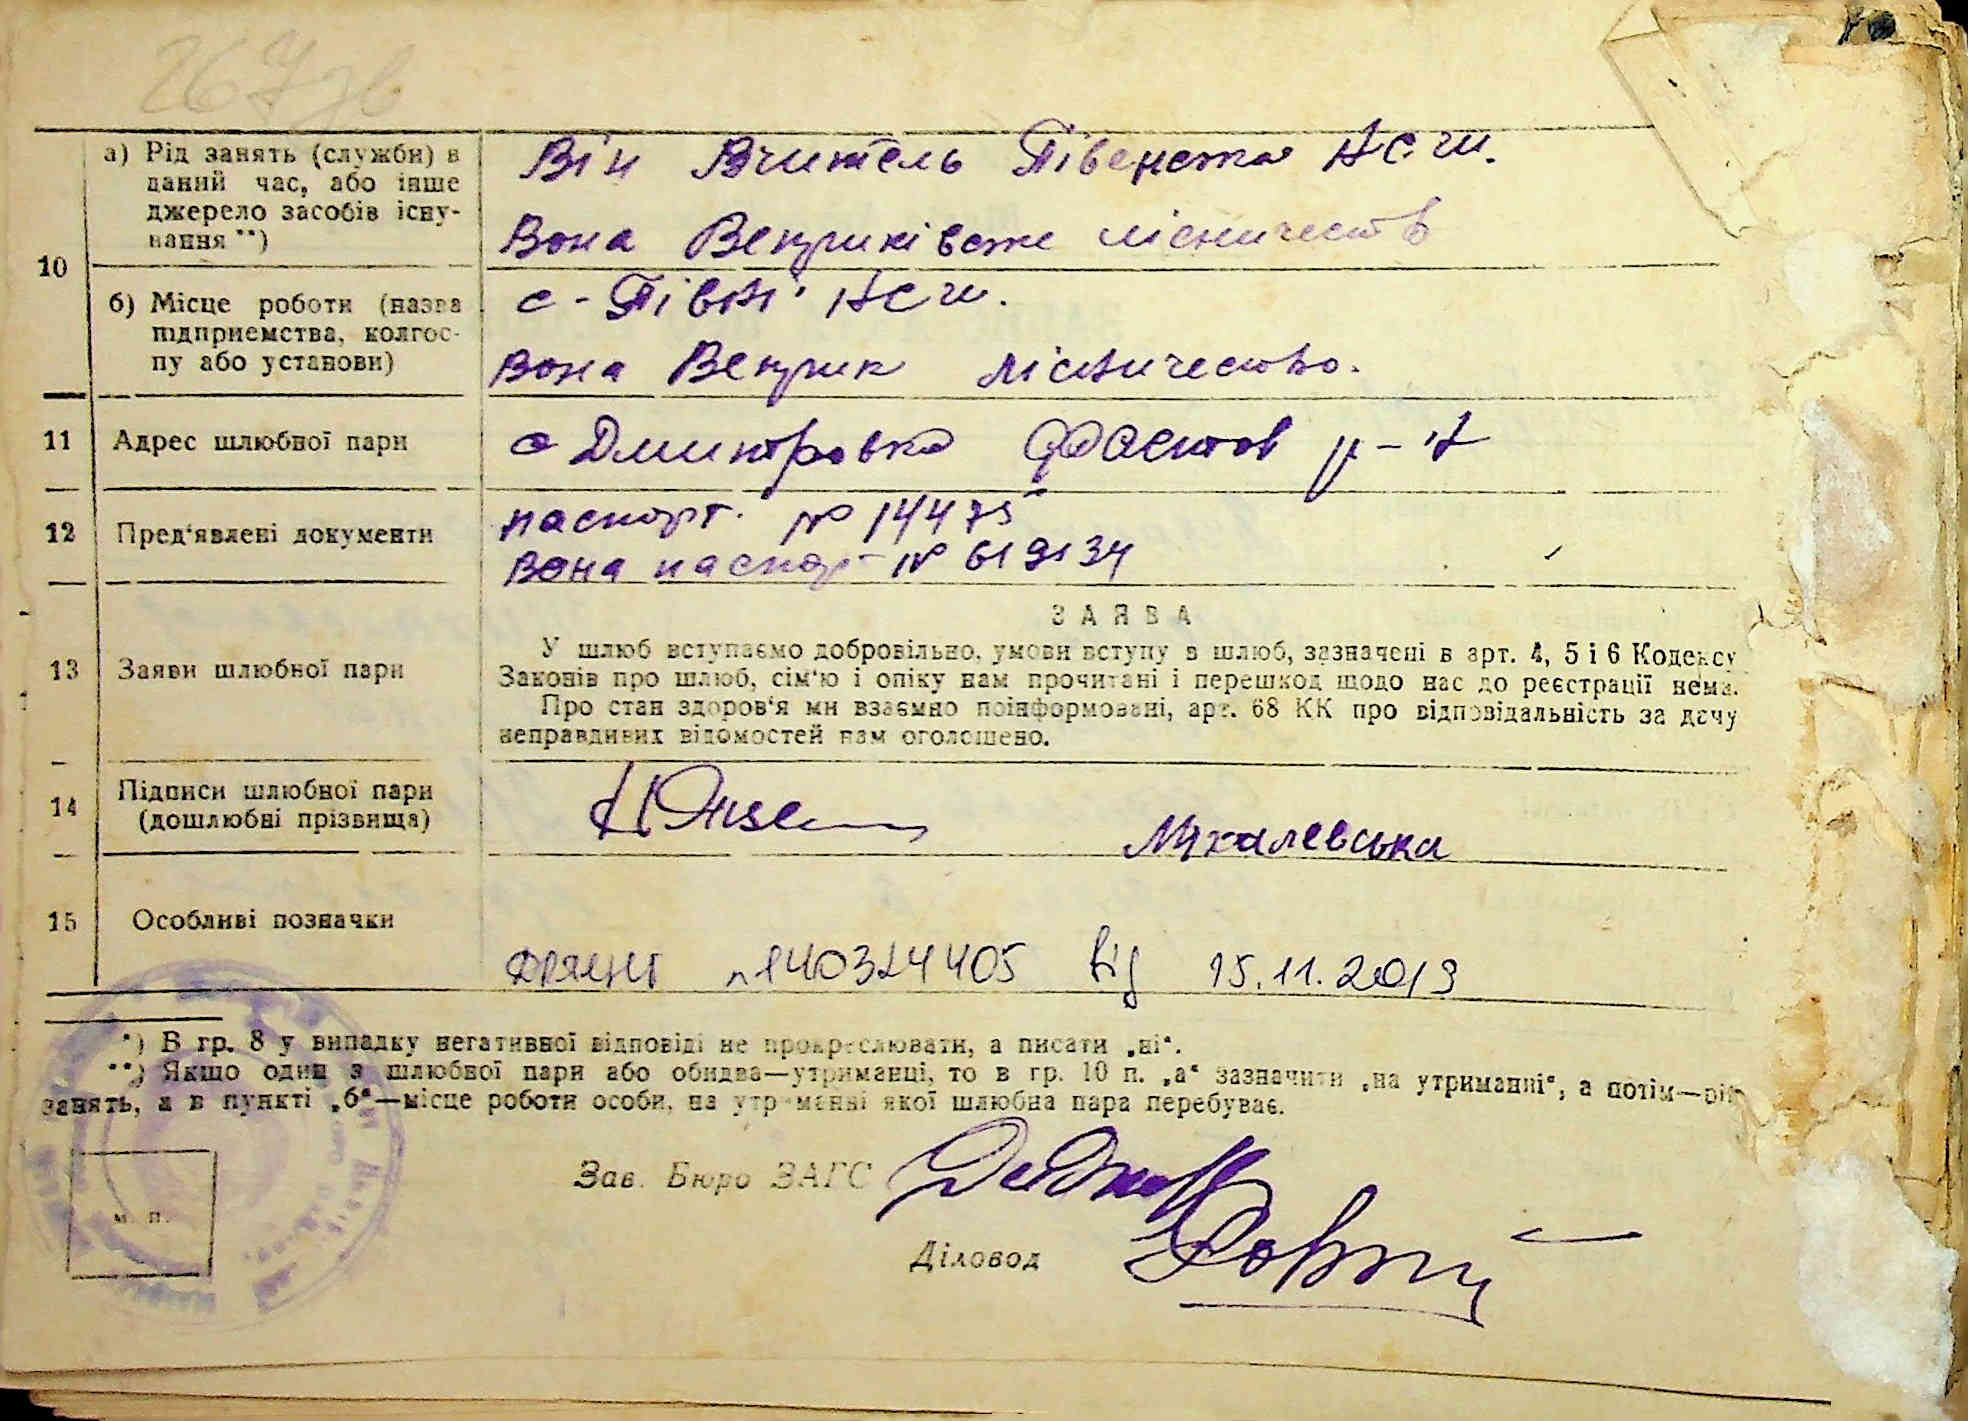 267 зв
10
а) Рід занять (служби) в
даний час, або інше
джерело засобів існу-
вання **)
Він Вчитель Півенська НСШ.
Вона Веприківське лісничество
б) Місце роботи (назва
підприємства, колгос-
пу або установи)
с-Півні НСШ.
Вона Веприк лісничество.
11 Адрес шлюбної пари
с Дмитровка Фастов р-н
12 Пред'явлені документи
паспорт. № 14475
Вона паспорт № 619134
13 Заяви шлюбної пари
ЗАЯВА
У шлюб вступаємо добровільно, умови вступу в шлюб, зазначені в арт. 4, 5 і 6 Кодексу
Законів про шлюб, сім'ю і опіку нам прочитані і перешкод щодо нас до реєстрації нема.
Про стан здоров'я ми взаємно поінформовані, арт. 68 КК про відповідальність за дачу
неправдивих відомостей нам оголошено.
14 Підписи шлюбної пари
(дошлюбні прізвища)
Михалевська
15 Особливі позначки
від 15.11.2019
*) В гр. 8 у випадку негативної відповіді не прокреслювати, а писати „ні“.
**) Якщо один з шлюбної пари або обидва—утриманці, то в гр. 10 п. „а“ зазначити „на утриманні“, а потім—рід
занять, а в пункті „б“—місце роботи особи, на утриманні якої шлюбна пара перебуває.
Зав. Бюро ЗАГС
Діловод
м. п.